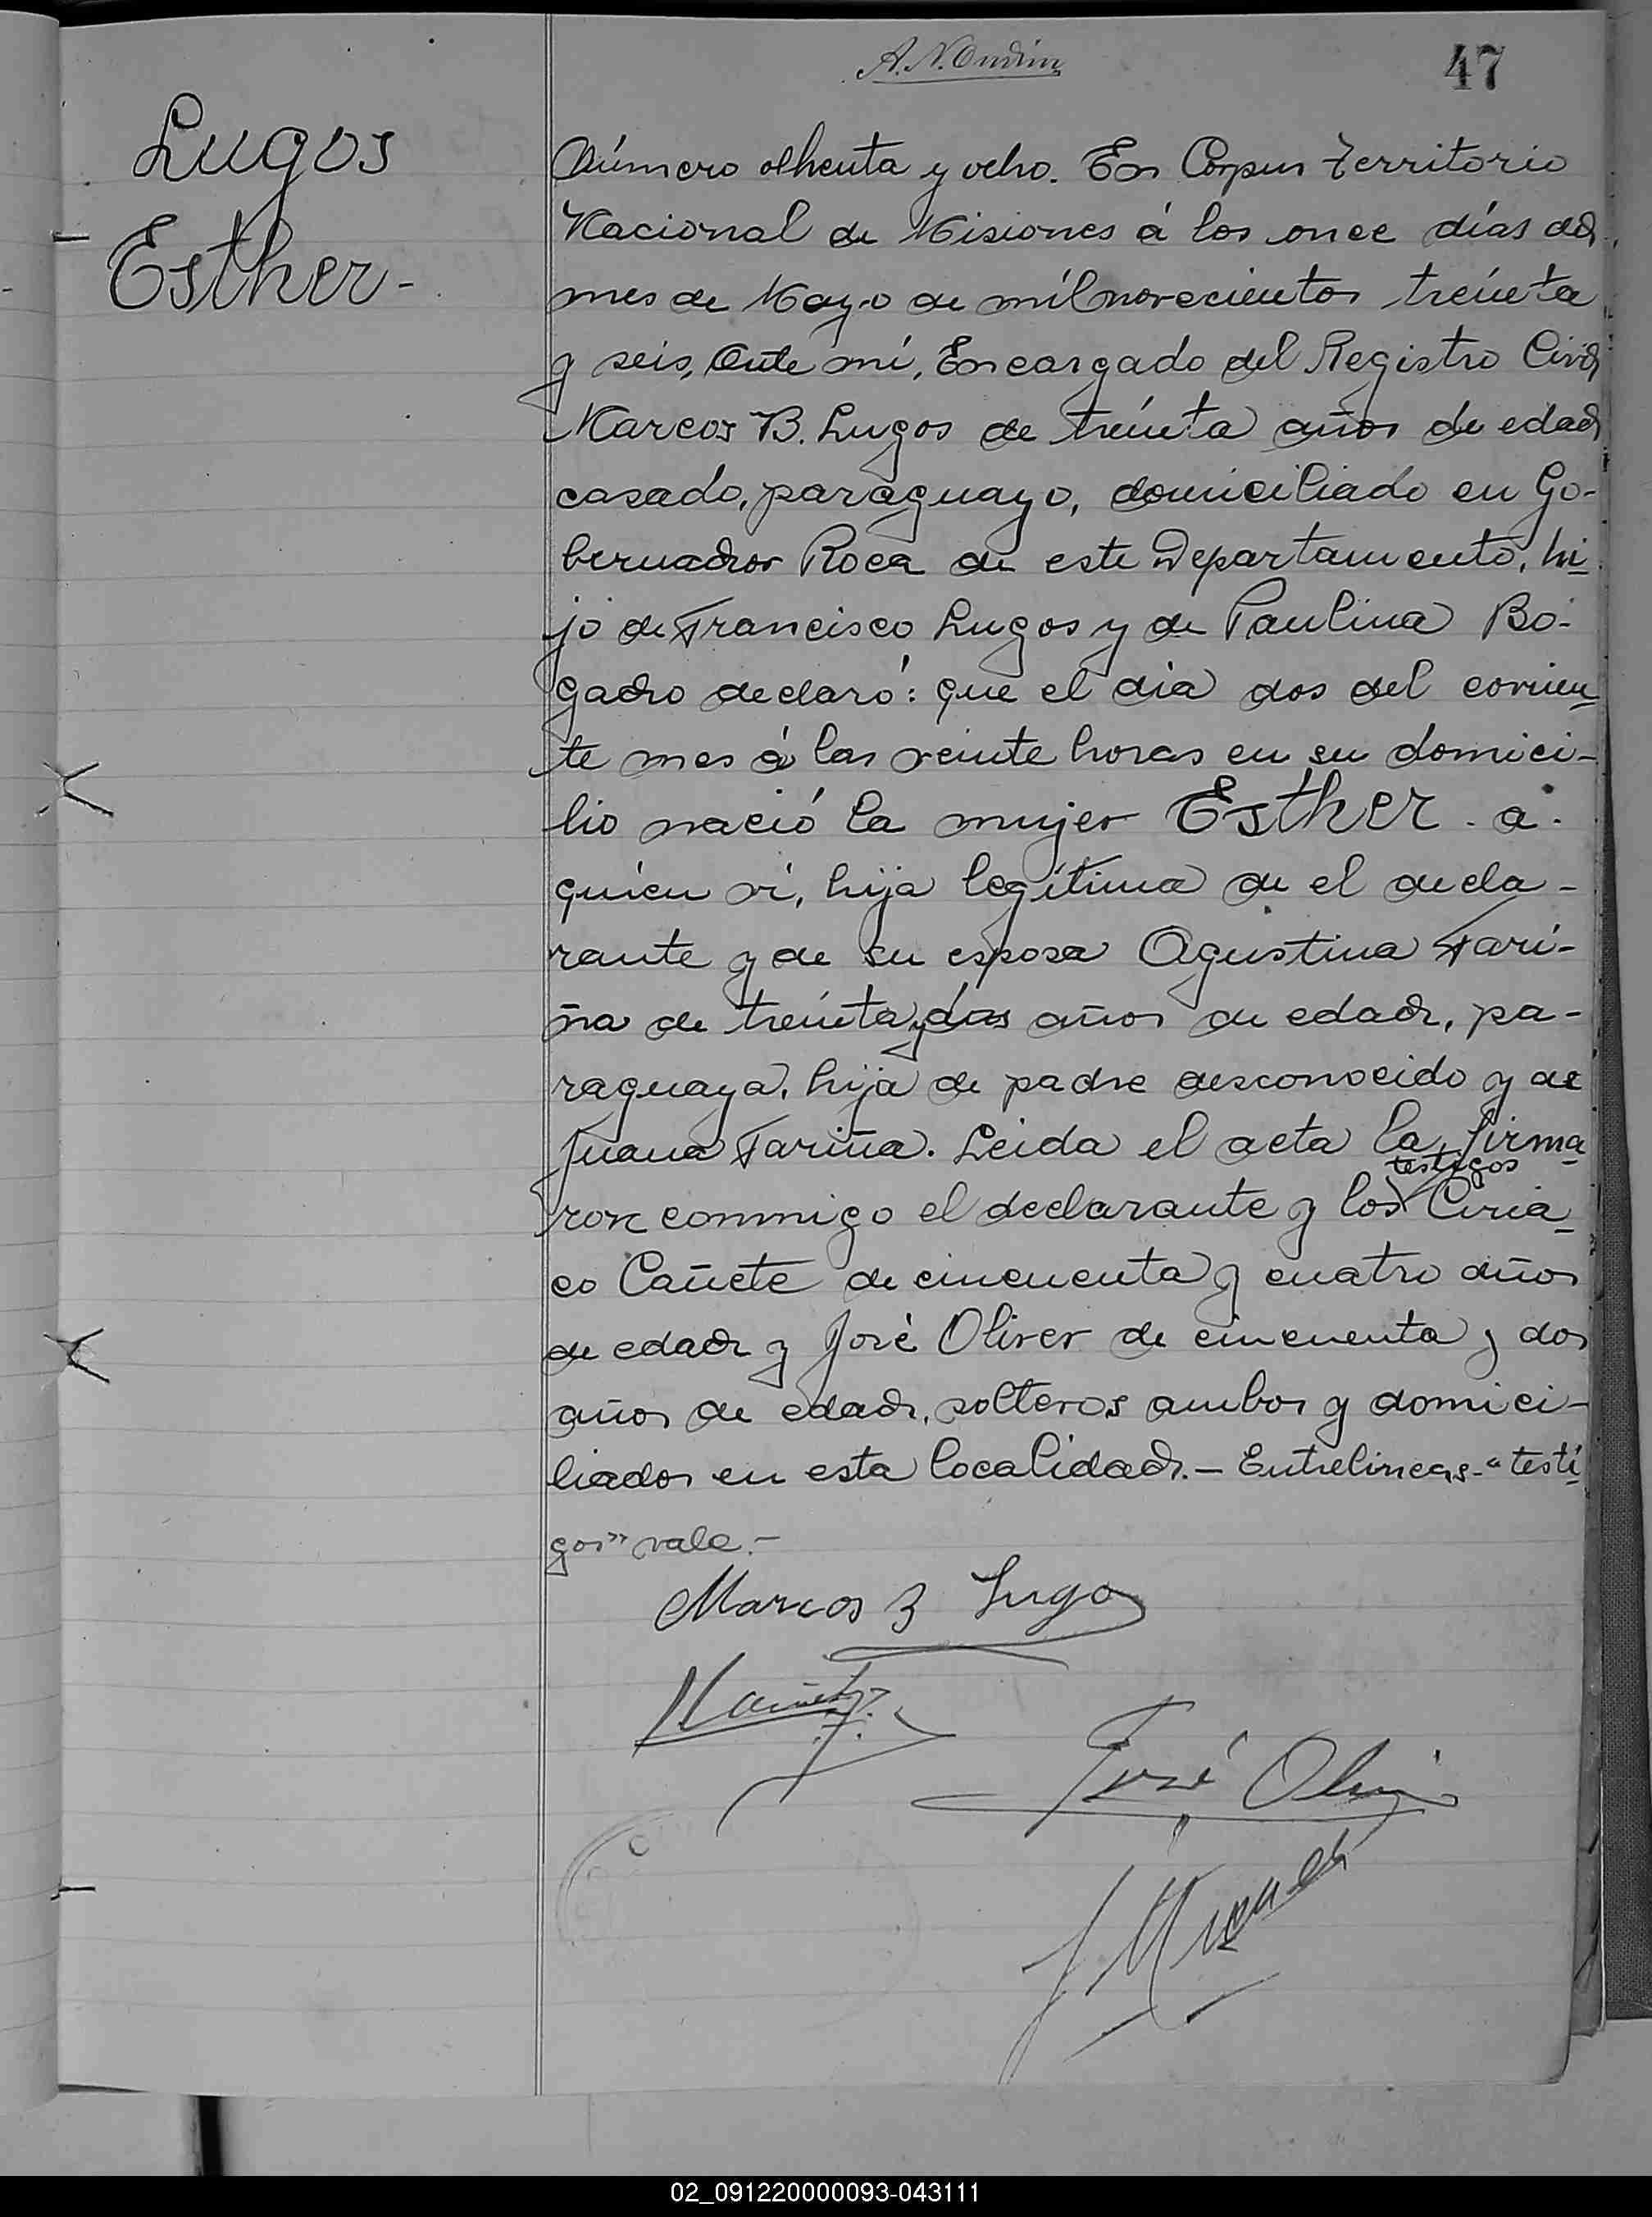 47
Lugos
Esther-
Número ochenta y ocho. En Corpus Territorio
Nacional de Misiones á los once días del
mes de Mayo de mil novecientos treinta
y seis, Ante mí, Encargado del Registro Civil
Marcos B. Lugos de treinta años de edad
casado, paraguayo, domiciliado en Go-
bernador Roca de este Departamento, hi-
jo de Francisco Lugos y de Paulina Bo-
gadro declaró: que el día dos del corrien-
te mes á las veinte horas en su domici-
lio nació la mujer Esther - a -
quien vi, hija legítima de el decla-
rante y de su esposa Agustina Fari-
ña de treinta y dos años de edad, pa-
raguaya, hija de padre desconocido y de
Juana Fariña. Leida el acta la firma-
testigos
ron conmigo el declarante y los Ciria-
co Cañete de cincuenta y cuatro años
de edad y José Oliver de cincuenta y dos
años de edad, solteros ambos y domici-
liados en esta localidad. - Entrelineas - "testi-
gos" vale. -
Marcos B Lugo
José
02_091220000093-043111